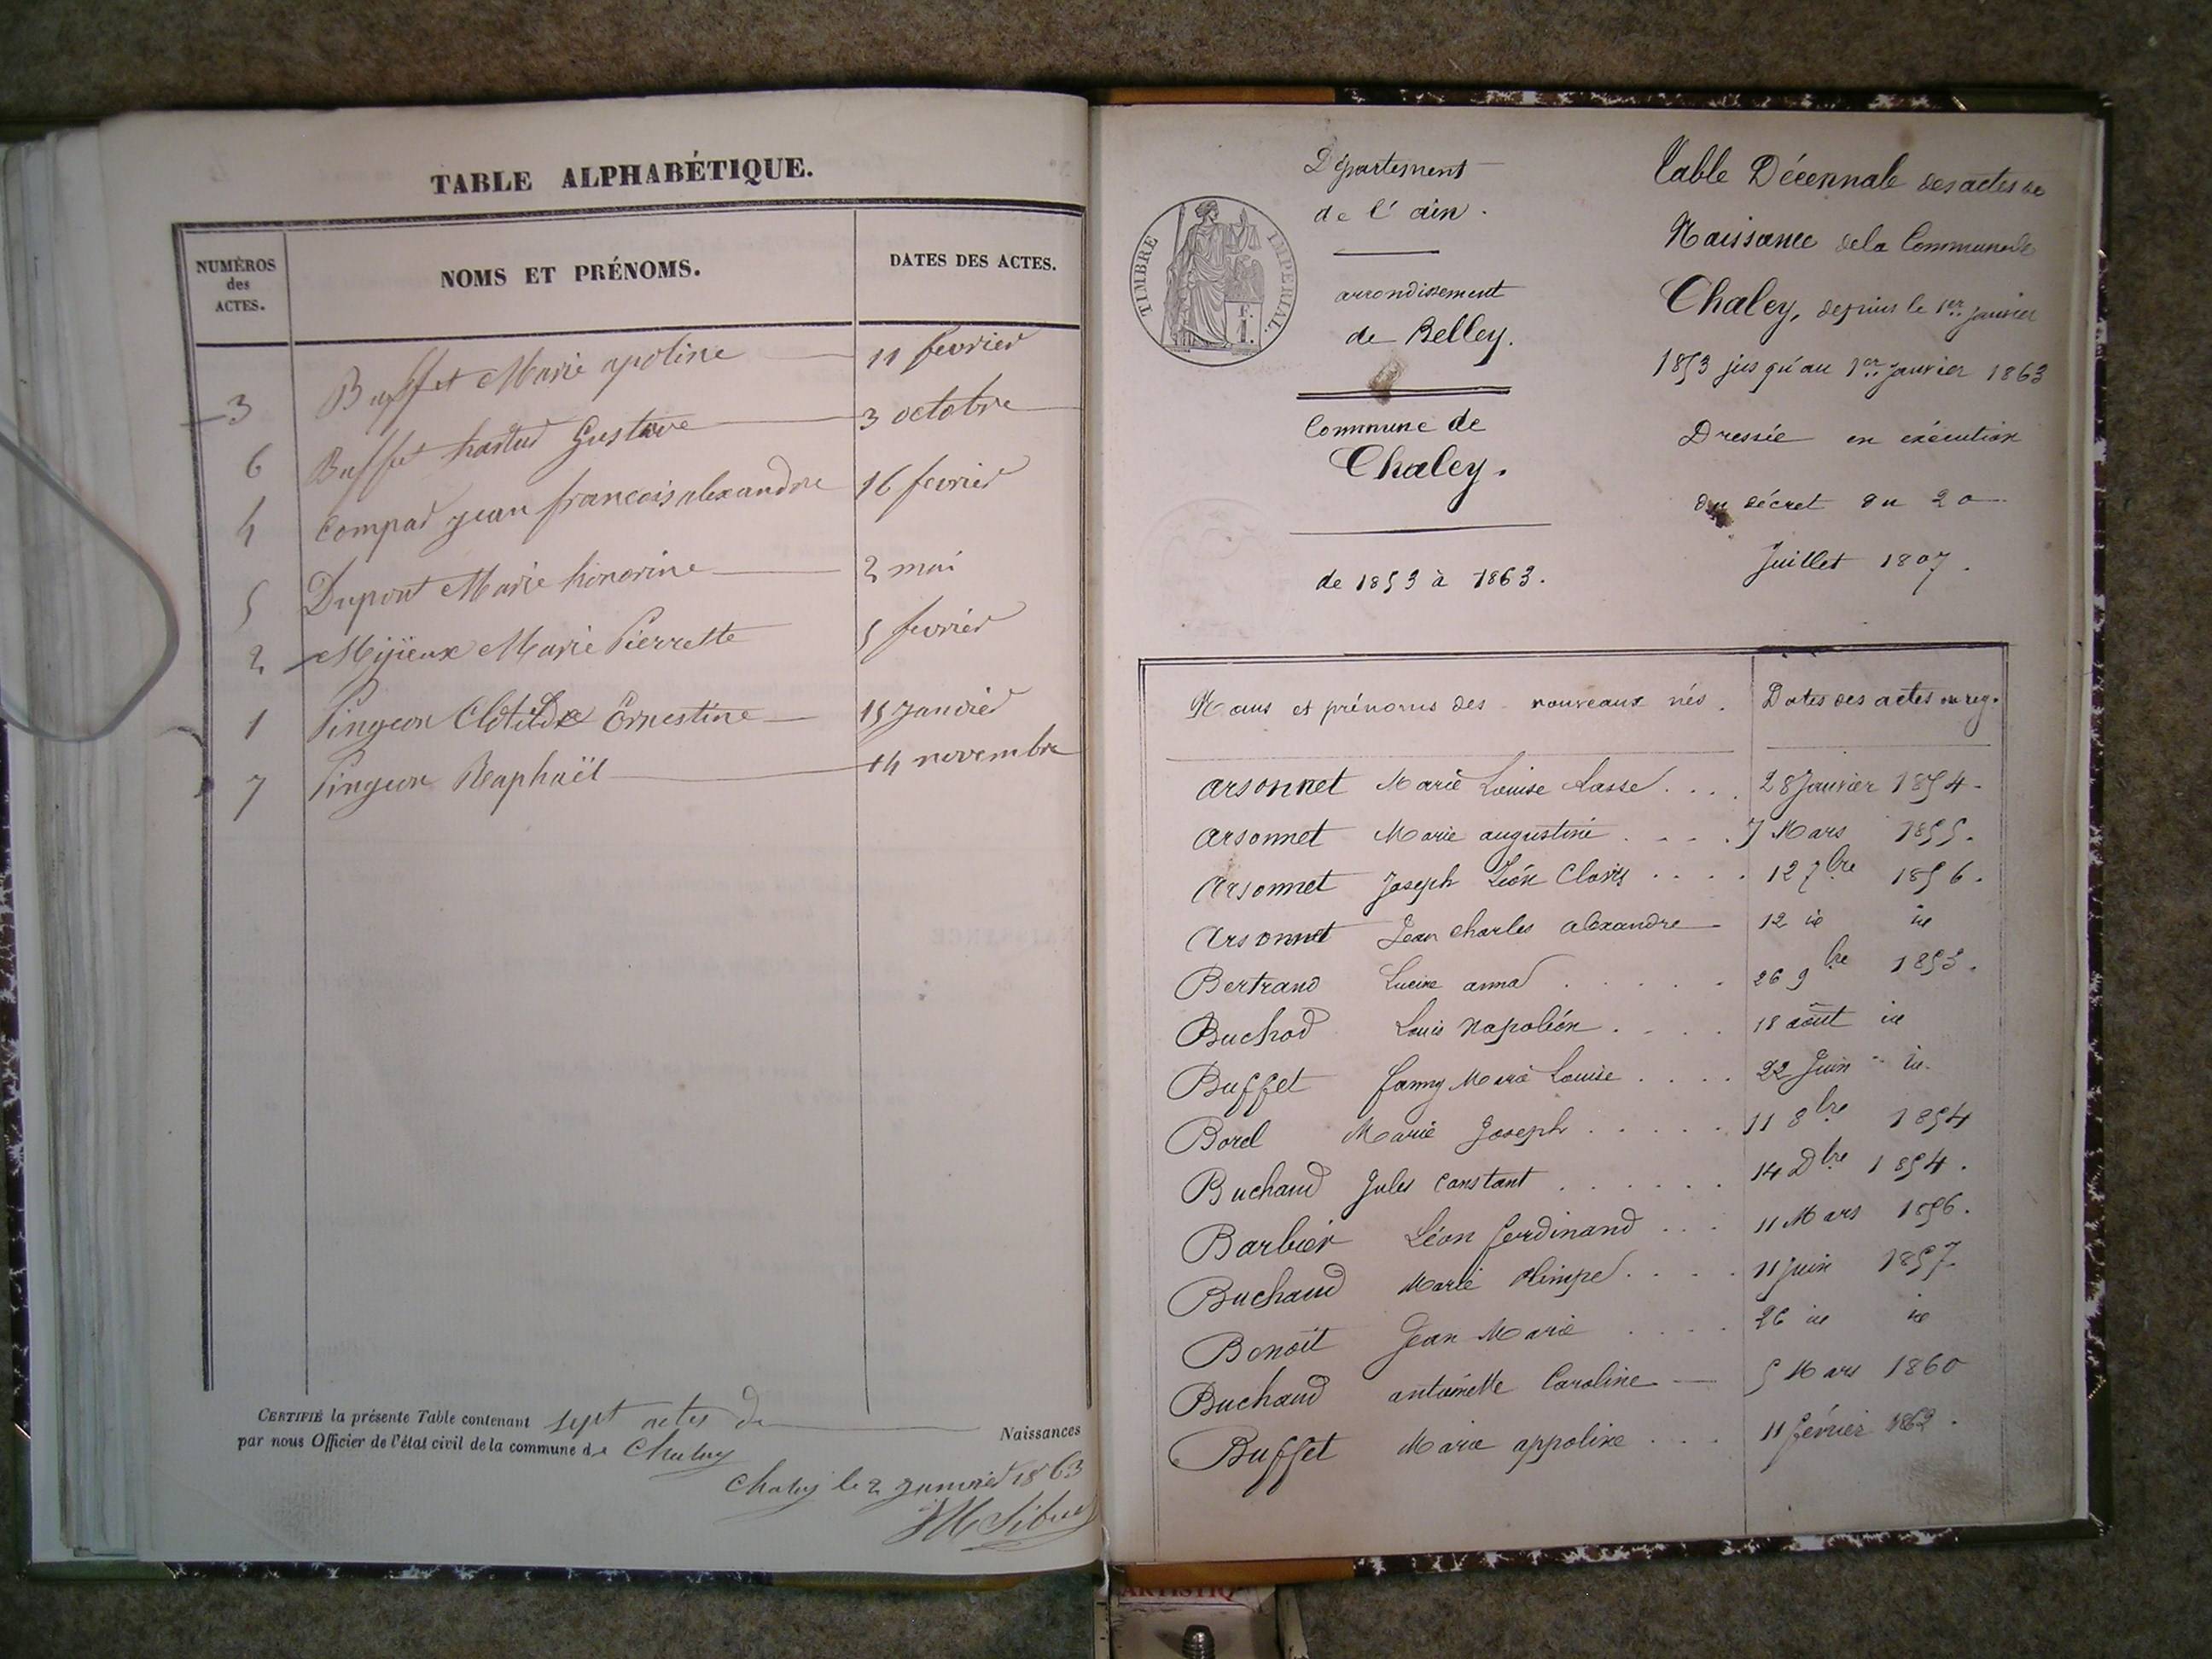 TABLE ALPHABÉTIQUE.
NUMÉROS des ACTES. NOMS ET PRÉNOMS. DATES DES ACTES.
3 Buffet Marie apoline 11 fevrier
6 Buffet Gustave 3 octobre
4 Compad jean francois alexandre 16 fevrier
5 Dupont Marie honorine 2 mai
2 Mijieux Marie Pierrette 5 fevrier
1 Pingeon Clotilde Ernestine 15 janvier
7 Pingeon Raphaël 14 novembre
CERTIFIÉ la présente Table contenant sept actes de Naissances
par nous Officier de l'état civil de la commune de Chaley
Chaley le 2 janvier 1863
Département
de l'ain.
TIMBRE IMPERIAL.
1 f.
arrondissement
de Belley.
Commune de
Chaley.
de 1853 à 1863.
Table Décennale des actes de
Naissance de la Commune de
Chaley, depuis le 1er janvier
1853 jusqu'au 1er janvier 1863
Dressée en exécution
du décret du 20
Juillet 1807.
Noms et prénoms des nouveaux nés. Dates des actes au reg.
Arsonnet Marie Louise . . . 28 Janvier 1854.
Arsonnet Marie augustine . . . . 7 Mars 1855.
Arsonnet Joseph Léon Clovis . . . . 12 7bre 1856.
Arsonnet Jean Charles alexandre 12 id id
Bertrand Lucine anna . . . . . 26 9bre 1853.
Buchod Louis Napoléon . . . . 18 août id
Buffet fanny Marie Louise . . . . 22 Juin id.
Borel Marie Joseph . . . . . 11 8bre 1854
Buchaud Jules Constant . . . . . . 14 Dbre 1854.
Barbier Léon ferdinand . . . 11 Mars 1856.
Buchaud Marie Olimpe . . . . 11 juin 1857
Benoit Jean Marie . . . . 26 id id
Buchaud antoinette Caroline 5 Mars 1860
Buffet Marie appoline . . . 11 février 1862.